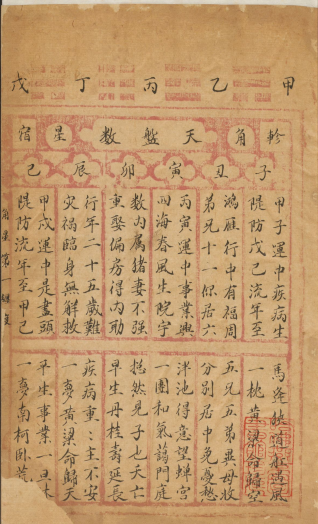 甲乙丙丁戊
軫角天盤數星宿
子丑寅卯辰巳
甲子運中疾病生
隄防戊己流年至
鴻雁行中有福周
弟兄十一似居六
丙寅運中事業興
四海春風生院宇
數內属猪妻不强
重娶偏房得內助
行年二十五歲難
災禍臨身無解救
甲戌運中是盡頭
隄防流年至甲己
馬逢 船遇風
一桃黄粱命歸空
五兄五弟異母收
分別居中免憂愁
泮池得意望蟬宮
一團和氣藹門庭
總然見子也夭亡
早生丹桂壽延長
疾病重：主不安
一夢黄粱命歸天
早生事業一旦休
一夢南柯卧荒
角星第一